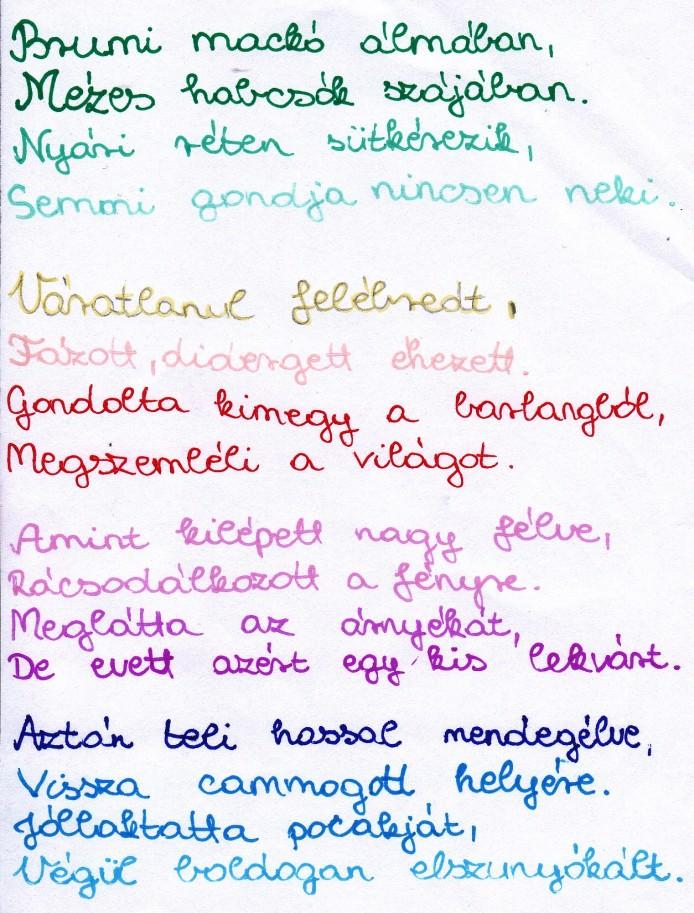 Brumi mackó álmában,
Mézes habcsók szájában.
Nyári réten sütkérezik,
Semmi gondja nincsen neki.
Váratlanul felébredt,
Fázott, didergett éhezett.
Gondolta kimegy a barlangból,
Megszemléli a világot.
Amint kilépett nagy félve,
Rácsodálkozott a fényre.
Meglátta az árnyékát,
De evett azért egy kis lekvárt.
Aztán teli hassal mendegélve,
Vissza cammogott helyére.
Jóllaktatta pocakját,
Végül boldogan elszunyókált.